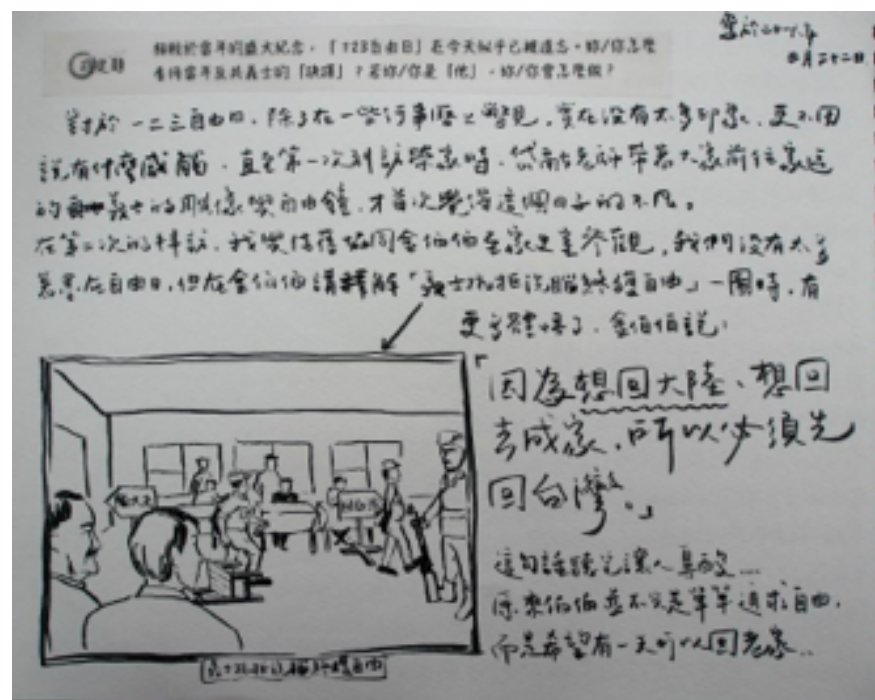 相較於當年的盛大紀念,「123自由日」在今天似乎已被遺忘。妳/你怎麼
看待當年反共義士的「抉擇」?若妳/你是「他」,妳/你會怎麼做?
對於一二三自由日,除了在一些行事曆上瞥見,實在沒有太多印象,更不用
說有什麼感觸,直至第一次到訪榮家時,老師帶著大家前往家區
的義士的雕像與自由鐘,才首次覺得這個日子的不凡。
在第二次的拜訪,我與協同金伯伯至家史室參觀,我們沒有太多
在自由日,但在金伯伯講解「義士抗拒洗腦終獲自由」一圖時,有
更多體悟了,金伯伯說:
「因為想回大陸、想回
去成家,所以必須先
回台灣。」
這句話聽完讓人鼻酸...
原來伯伯並不只是單單追求自由,
而是希望有一天可以回老家...